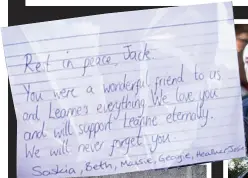 Rest in peace, Jack.
You were a wonderful friend to us
and Leanne's everything. We love you
and will support Leanne eternally.
We will never forget you.
Saskia, Beth, Maisie, Georgie, Heather,